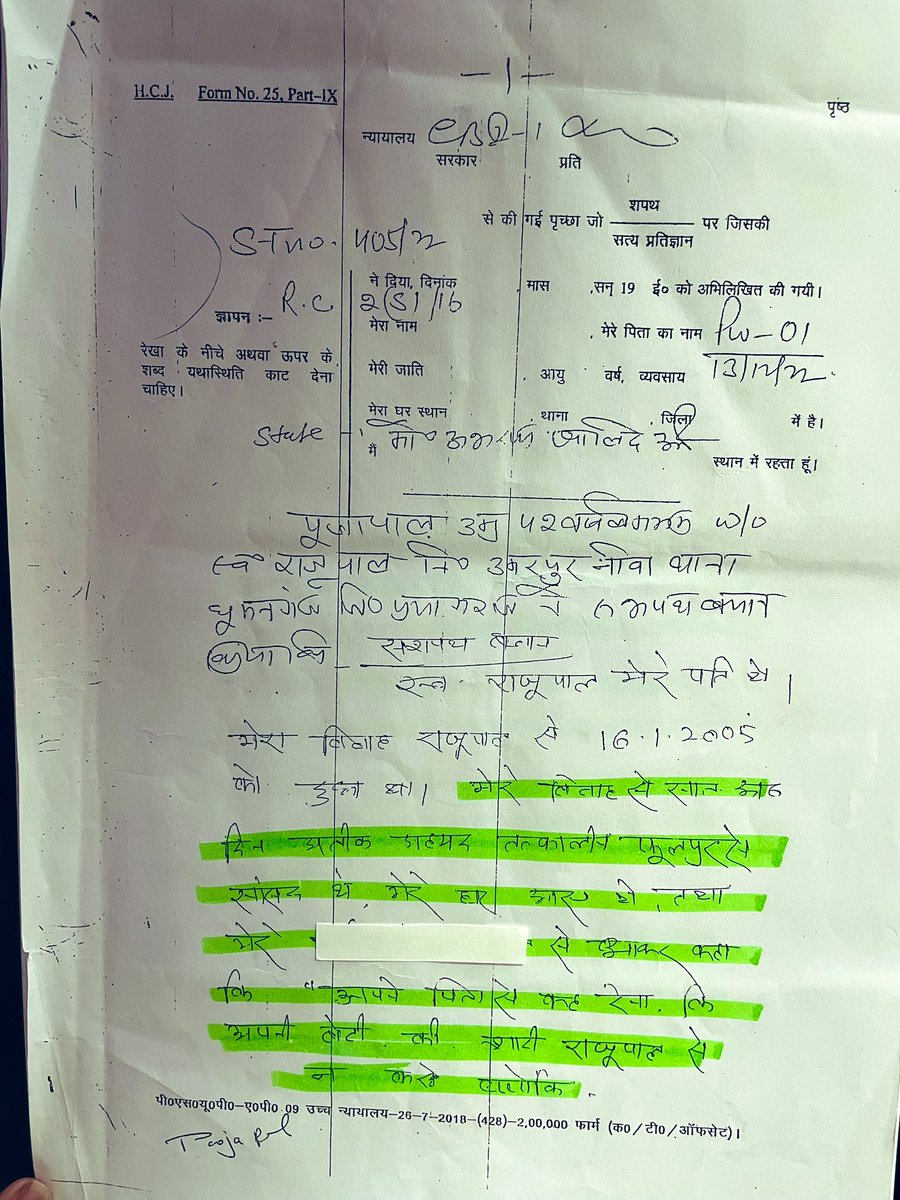 -1-
H.C.J. Form No. 25, Part-IX
पृष्ठ
न्यायालय
सरकार प्रति
से की गई पृच्छा जो शपथ पर जिसकी
सत्य प्रतिज्ञान
S.T no. 405/
ने दिया, दिनांक , मास ,सन् 19 ई० को अभिलिखित की गयी।
ज्ञापन :– R.C. 2(S)/16
मेरा नाम , मेरे पिता का नाम PW-01
रेखा के नीचे अथवा ऊपर के
शब्द यथास्थिति काट देना
चाहिए।
मेरी जाति , आयु वर्ष, व्यवसाय
मेरा घर स्थान , थाना , जिला में है।
State
मैं स्थान में रहता हूं।
पूजापाल उम्र 42 वर्ष w/o
स्व राजूपाल नि० उमरपुर नीवा थाना
धूमनगंज जि० प्रयागराज ने सशपथ बयान
किया कि सशपथ बयान
स्व. राजूपाल मेरे पति थे।
मेरा विवाह राजूपाल से 16.1.2005
को हुआ था। मेरे विवाह से सात आठ
दिन अतीक अहमद तत्कालीन फूलपुर से
सांसद थे, मेरे घर आए थे, तथा
मेरे से बुलाकर कहा
कि "अपने पिता से कह देना कि
अपनी बेटी की शादी राजूपाल से
न करे क्योंकि
पी०एस०यू०पी०–ए०पी० 09 उच्च न्यायालय–26-7-2018–(428)–2,00,000 फार्म (क०/टी०/ऑफसेट)।
Pooja Pal